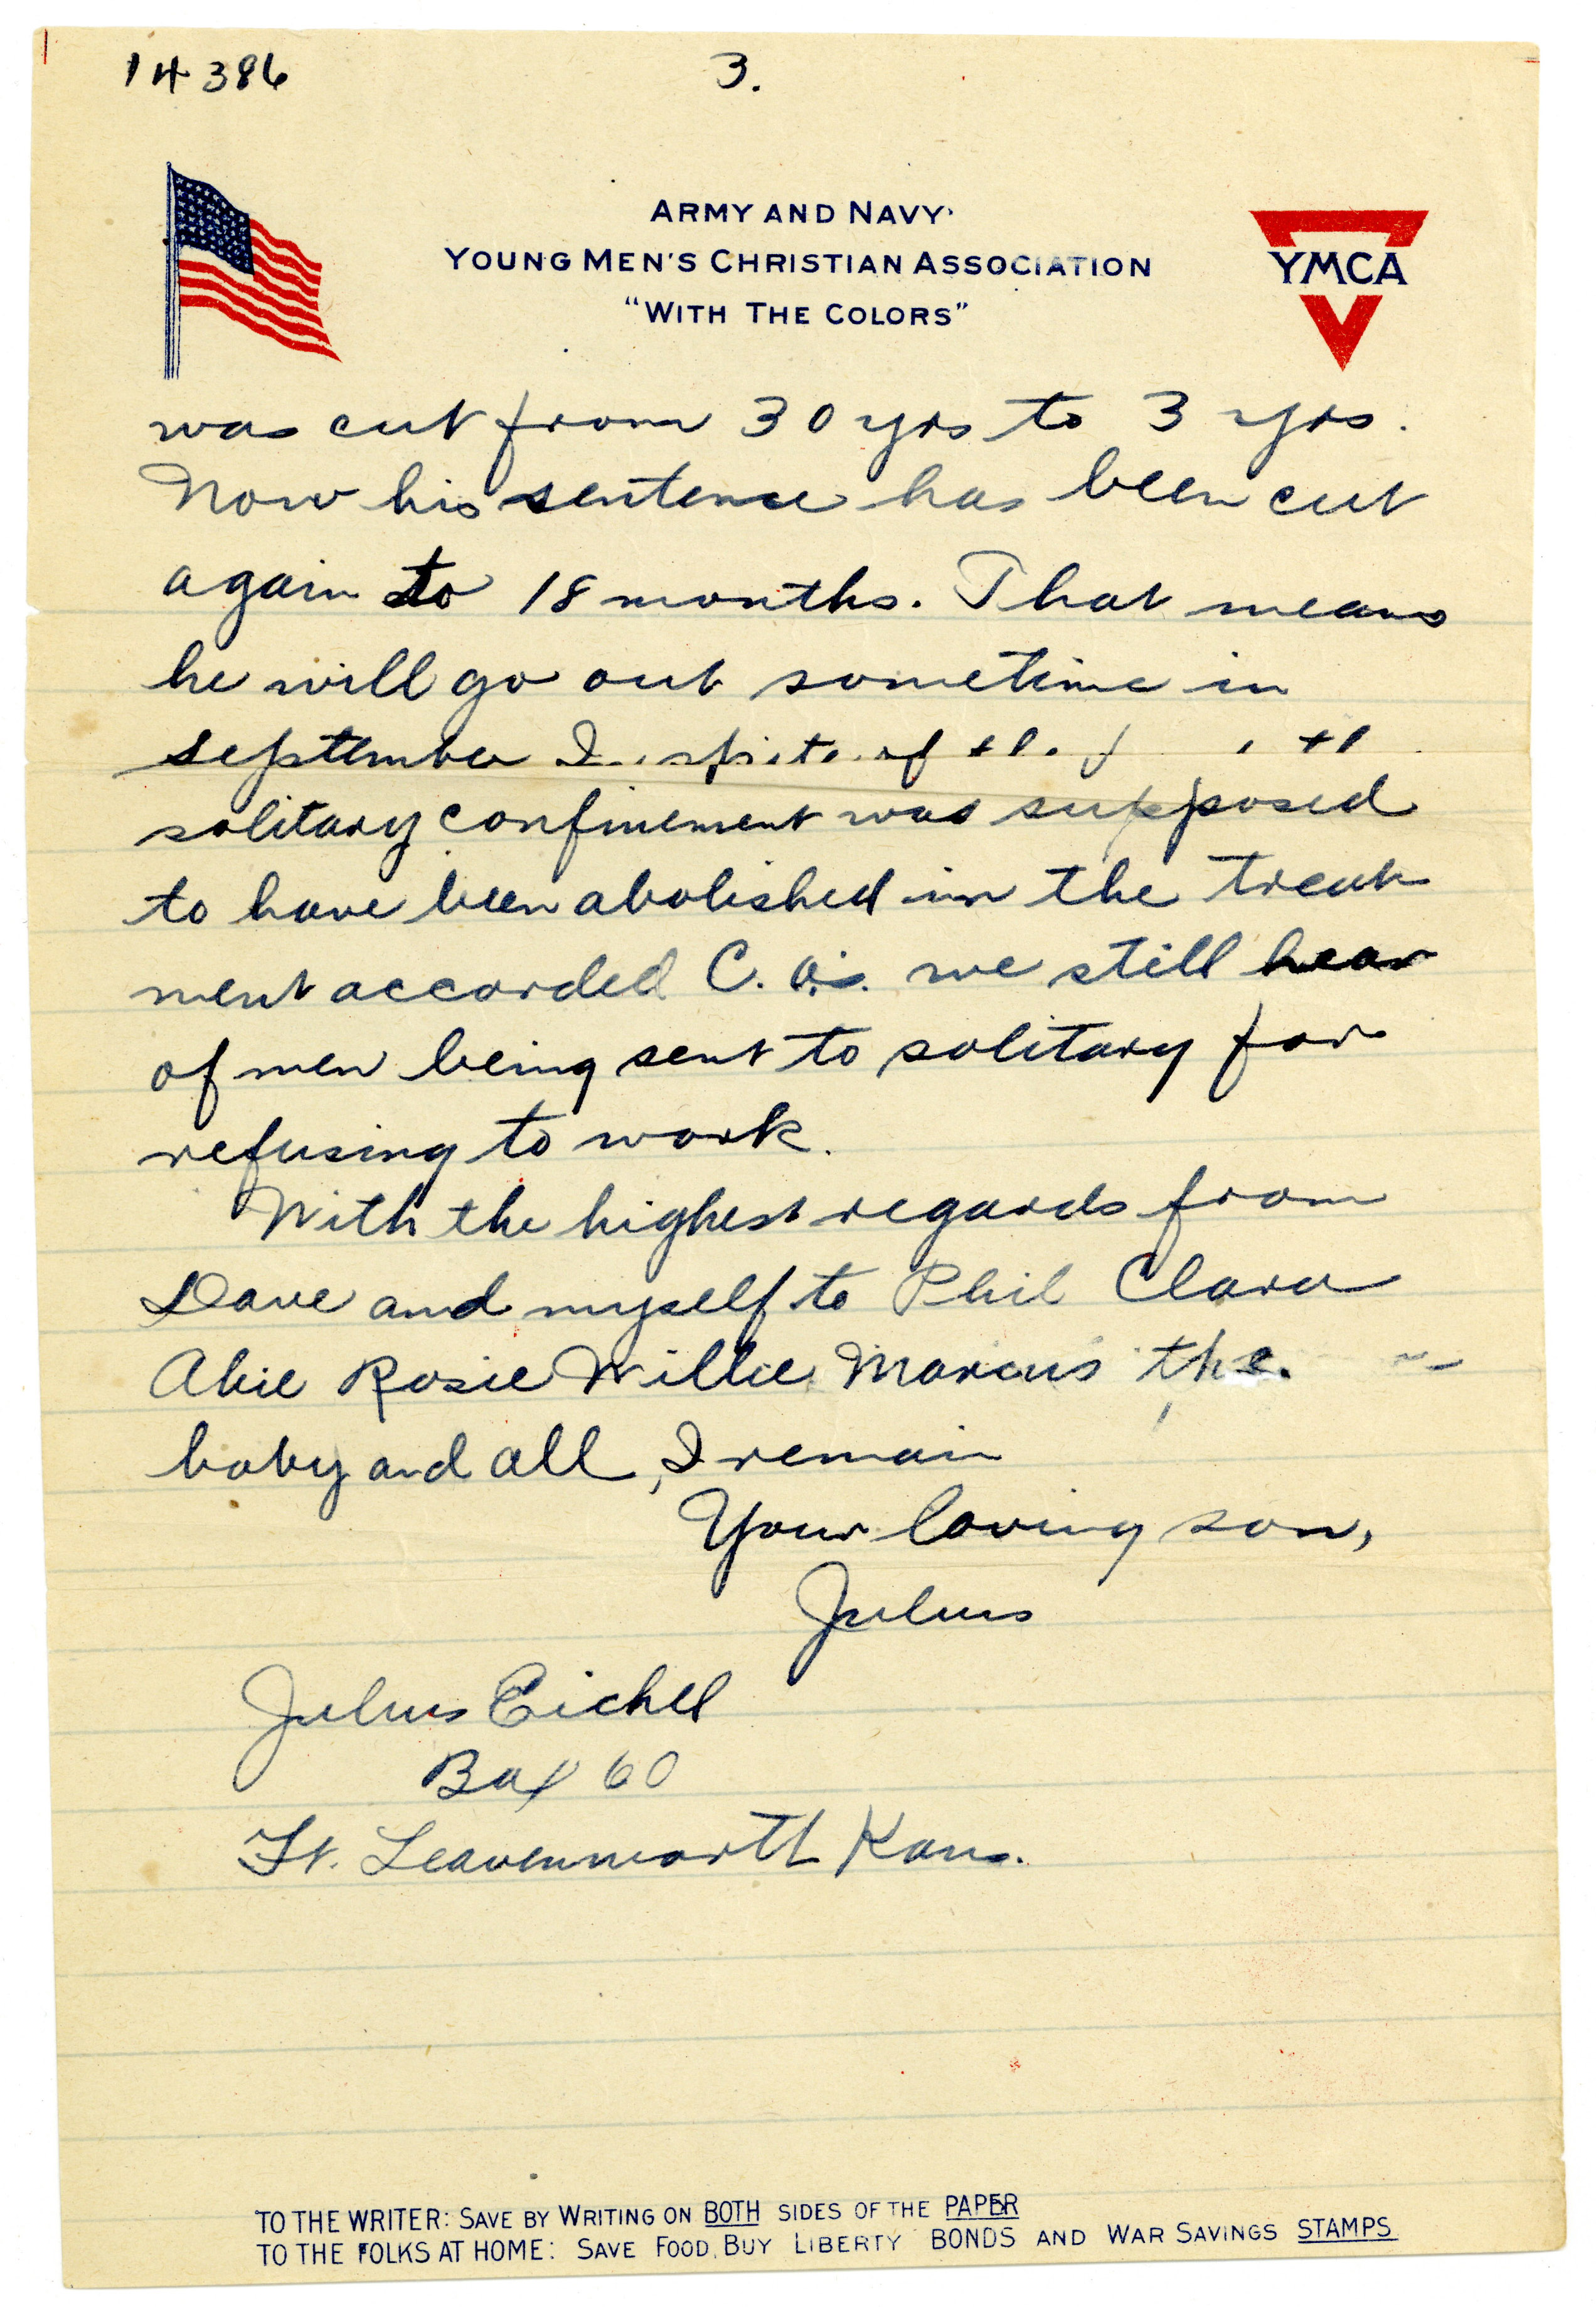 14386
3.
ARMY AND NAVY
YOUNG MEN'S CHRISTIAN ASSOCIATION
"WITH THE COLORS"
YMCA
was cut from 30 yrs to 3 yrs.
Now his sentence has been cut
again to 18 months. That means
he will go out sometime in
September In spite of the
solitary confinement was supposed
to have been abolished in the treat
ment accorded C.O.s. we still hear
of men being sent to solitary for
refusing to work.
With the highest regards from
Dave and myself to Phil Clara
Abie Rosie Willie Marcus the
baby and all, I remain
Your loving son,
Julius
Julius Eichel
Box 60
Ft. Leavenworth Kans.
TO THE WRITER: SAVE BY WRITING ON BOTH SIDES OF THE PAPER
TO THE FOLKS AT HOME: SAVE FOOD, BUY LIBERTY BONDS AND WAR SAVINGS STAMPS